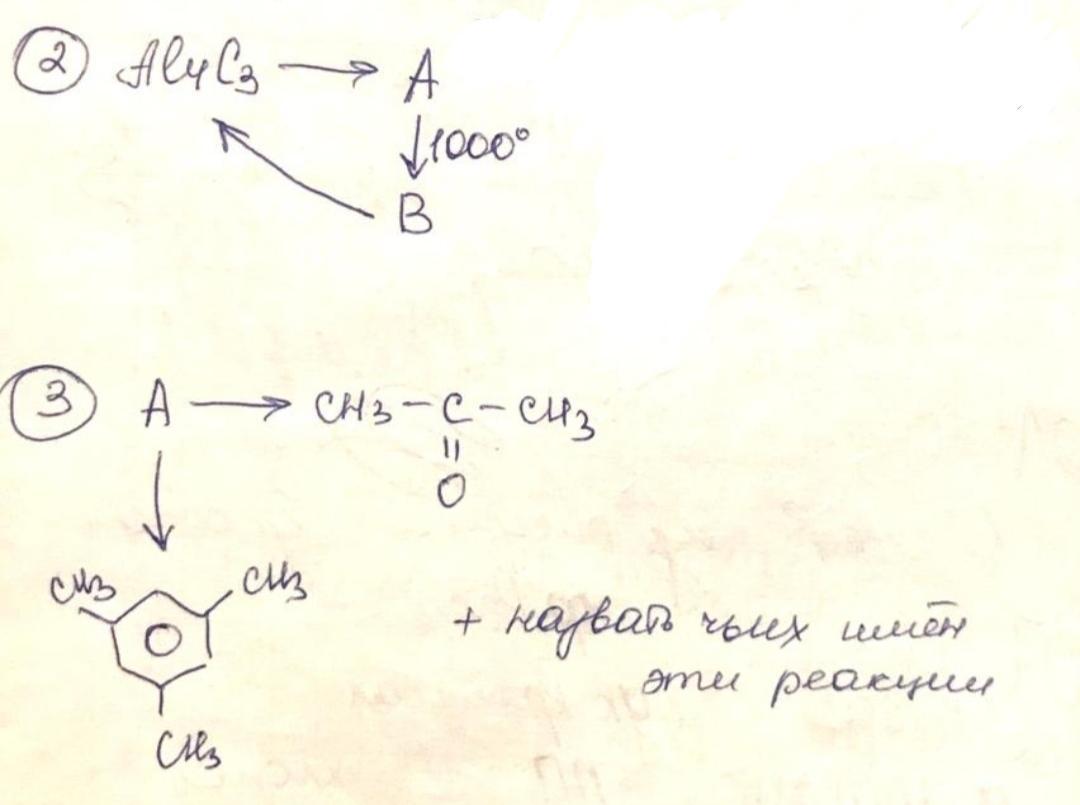 ② Al4C3 → A
↓1000°
B
③ A → CH3 – C – CH3
||
O
↓
CH3 CH3
+ назвать чьих имён
эти реакции
CH3